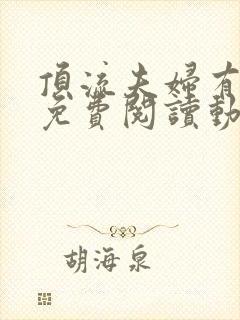 頂流夫婦有
免費閱讀動
胡海泉